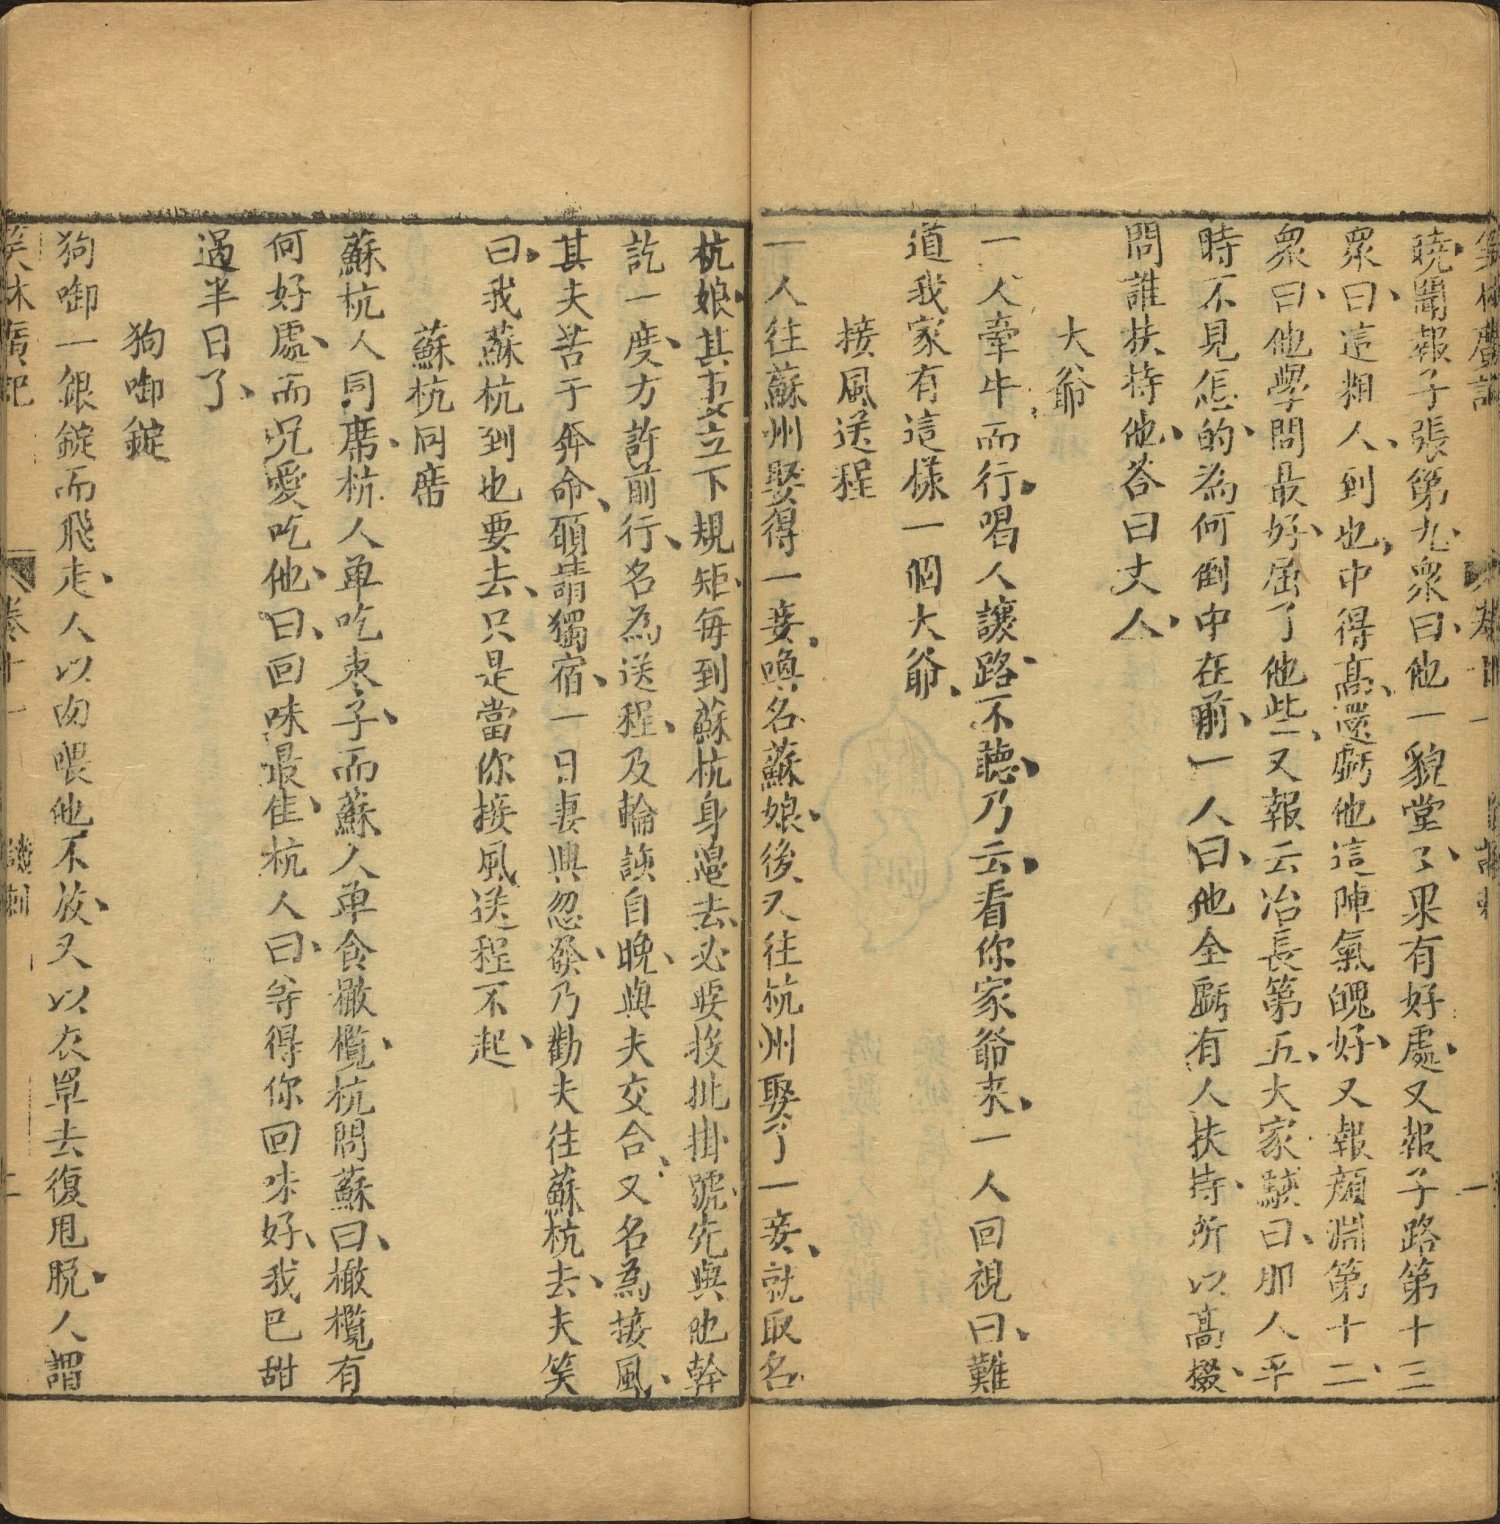 笑林廣記
曉聞報子張第九衆曰他一貌堂〻果有好處又報子路第十三
衆曰這粗人到也中得高還虧他這陣氣魄好又報顔淵第十二
衆曰他學問最好屈了他些又報云冶長第五大家駭曰那人平
時不見怎的為何倒中在前一人曰他全虧有人扶持所以高掇
問誰扶持他答曰丈人
大爺
一人牽牛而行唱人讓路不聽乃云看你家爺来一人回視曰難
道我家有這樣一個大爺
接風送程
一人往蘇州娶得一妾喚名蘇娘後又往杭州娶了一妾就取名
杭娘其妻立下規矩每到蘇杭身邊去必要挨批掛號先與他幹
訖一度方許前行名為送程及輪該自晚與夫交合又名為接風
其夫苦于奔命願請獨宿一日妻興忽發乃勸夫往蘇杭去夫笑
曰我蘇杭到也要去只是當你接風送程不起
蘇杭同席
蘇杭人同席杭人单吃枣子而蘇人单食橄欖杭問蘇曰橄欖有
何好處而兄愛吃他曰回味最佳杭人曰等得你回味好我已甜
過半日了
狗啣錠
狗啣一銀錠而飛走人以肉喂他不放又以衣罩去復甩脫人謂
笑林廣記
卷十一
譏刺
二